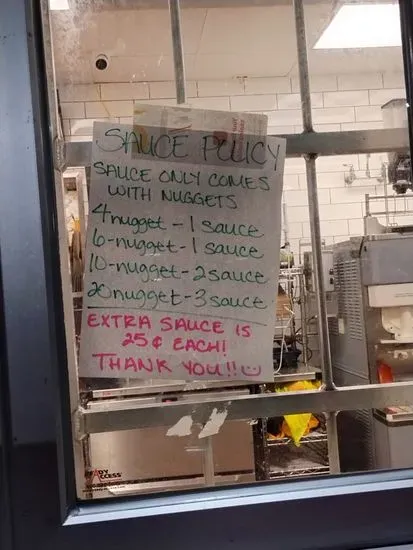 SAUCE POLICY
SAUCE ONLY COMES
WITH NUGGETS
4 nugget - 1 sauce
6-nugget - 1 sauce
10-nugget - 2 sauce
20 nugget - 3 sauce
EXTRA SAUCE IS
25¢ EACH!
THANK YOU!!
READY
ACCESS